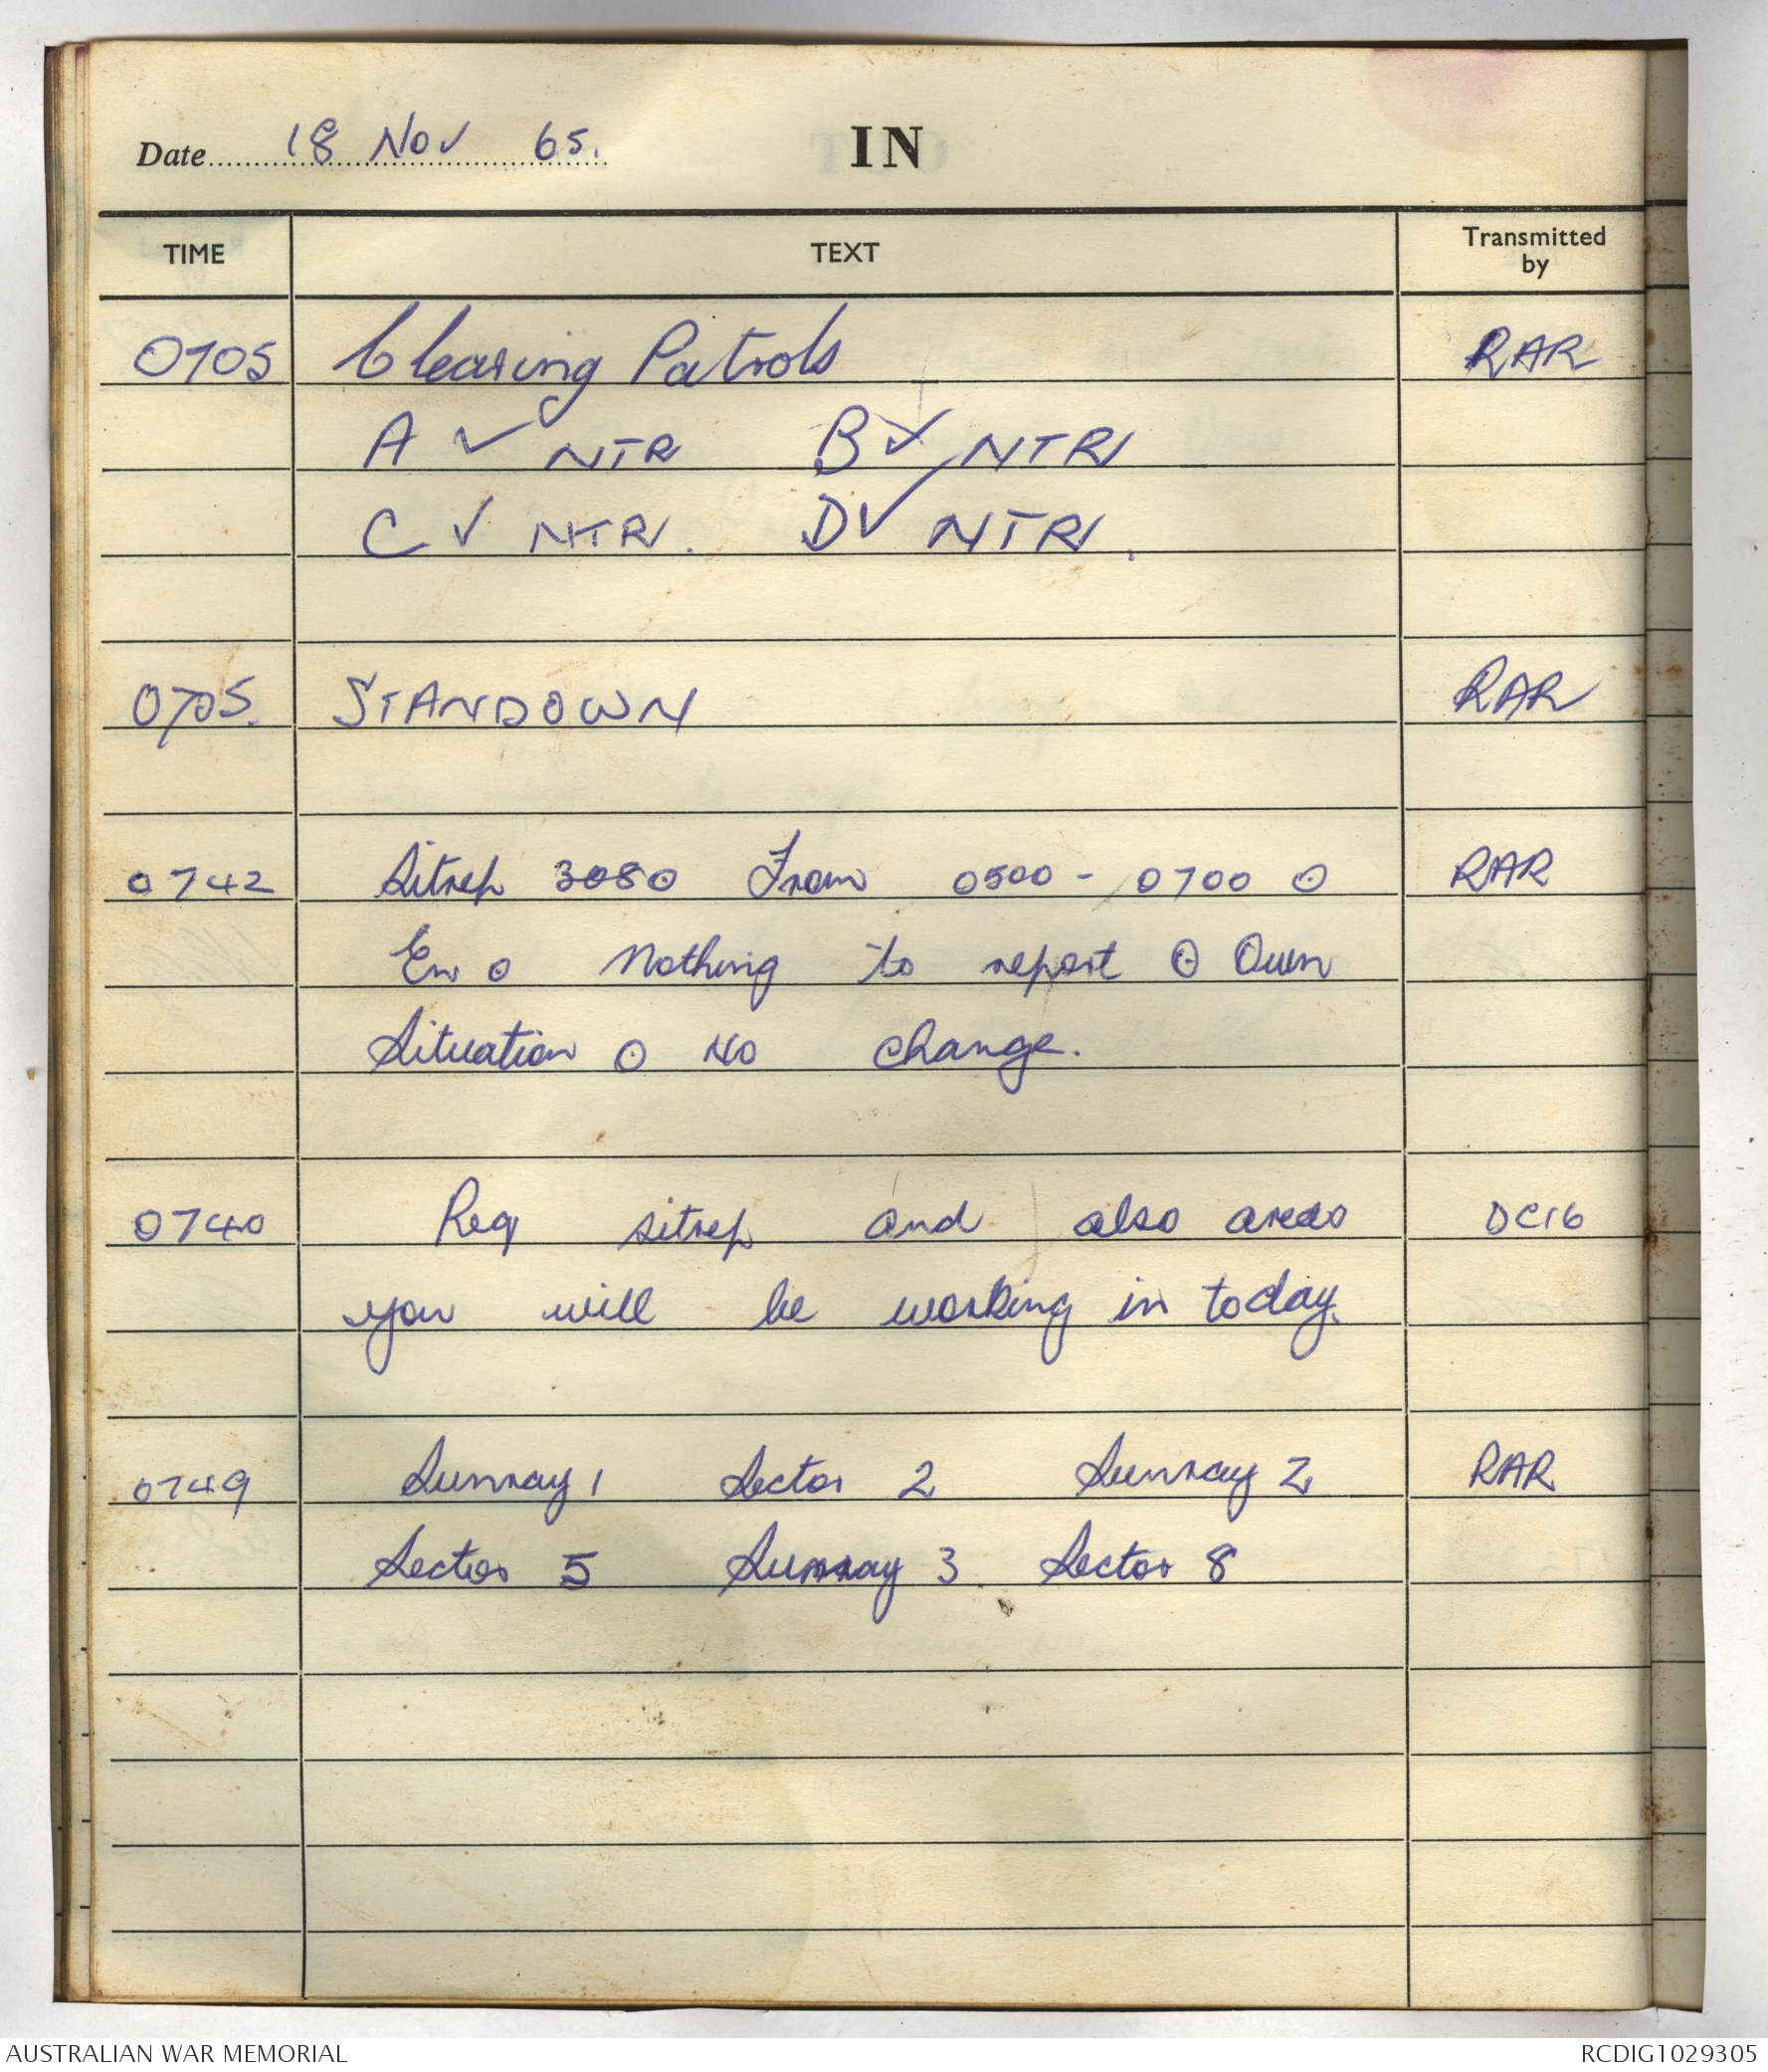 Date 18 Nov 65. IN
TIME TEXT Transmitted by
0705 Clearing Patrols RAR
A ✓ NTR B ✓ NTR
C ✓ NTR. D ✓ NTR.
0705. STANDOWN RAR
0742 Sitrep 3080 From 0500 - 0700 ⊙ RAR
En ⊙ Nothing to report ⊙ Own
Situation ⊙ No change.
0740 Req sitrep and also areas DC16
you will be working in today.
0749 Sunray 1 Sector 2 Sunray 2 RAR
Sector 5 Sunray 3 Sector 8
AUSTRALIAN WAR MEMORIAL RCDIG1029305